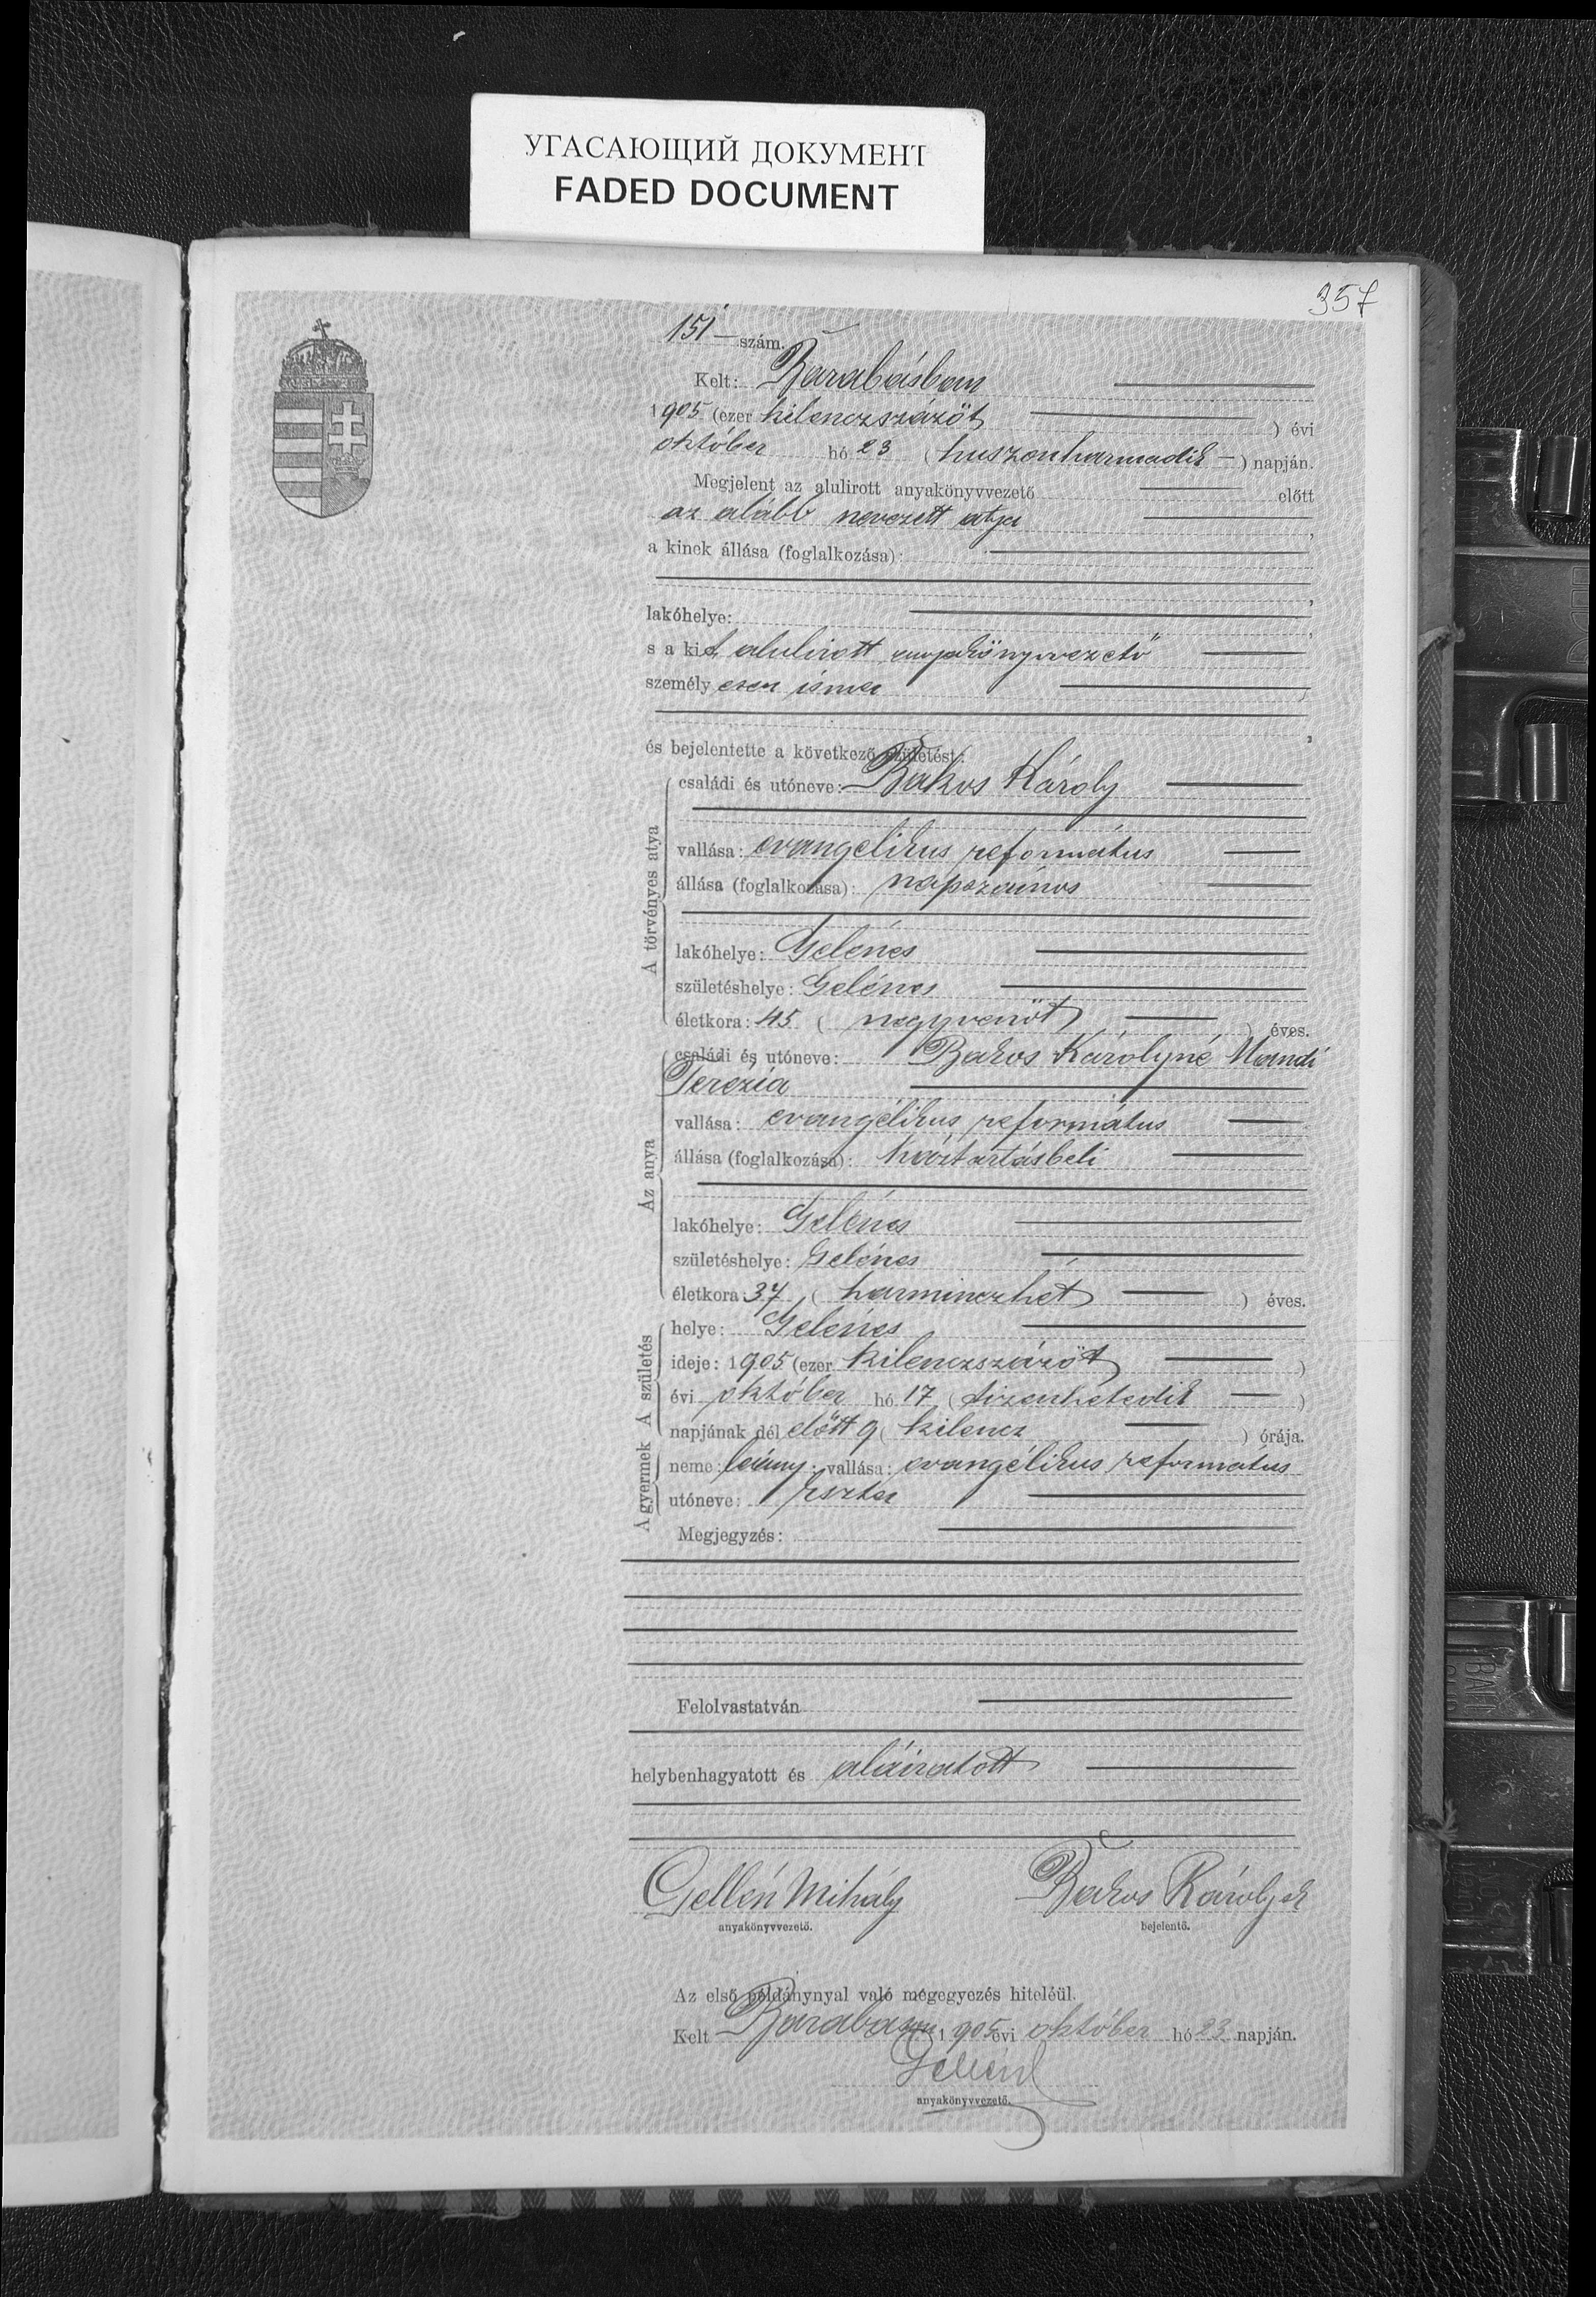 УГАСАЮЩИЙ ДОКУМЕНТ
FADED DOCUMENT
357
151 — szám.
Kelt: Barabásban
1905 (ezer kilenczszázöt) évi
október hó 23 (huszonharmadik —) napján.
Megjelent az alulirott anyakönyvvezető előtt
az alább nevezett atya,
a kinek állása (foglalkozása):
lakóhelye:
s a kit alulirott anyakönyvvezető
személyesen ismer
és bejelentette a következő születést:
A törvényes atya
családi és utóneve: Bakos Károly
vallása: evangelikus református
állása (foglalkozása): napszámos
lakóhelye: Gelénes
születéshelye: Gelénes
életkora: 45 (negyvenöt) éves.
Az anya
családi és utóneve: Bakos Károlyné Mandi
Terézia
vallása: evangélikus református
állása (foglalkozása): háztartásbeli
lakóhelye: Gelénes
születéshelye: Gelénes
életkora: 37 (harminczhét) éves.
A születés
helye: Gelénes
ideje: 1905 (ezer kilenczszázöt)
évi október hó 17 (tizenhetedik —)
napjának dél előtt 9 (kilencz) órája.
A gyermek
neme: leány; vallása: evangélikus református
utóneve: Eszter
Megjegyzés:
Felolvastatván
helybenhagyatott és aláiratott
Gellén Mihály Bakos Károly
anyakönyvvezető. bejelentő.
Az első példánynyal való megegyezés hiteléül.
Kelt 1905 évi október hó 23 napján.
anyakönyvvezető.